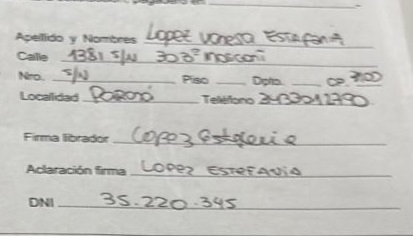 Apellido y Nombres Lopez Vanesa Estefania
Calle 1381 S/N 303° Moscani
Nro. S/N Piso Dpto. CP. 3100
Localidad Paraná Teléfono
Firma librador Lopez Estefania
Aclaración firma Lopez ESTEFANIA
DNI 35.220.345